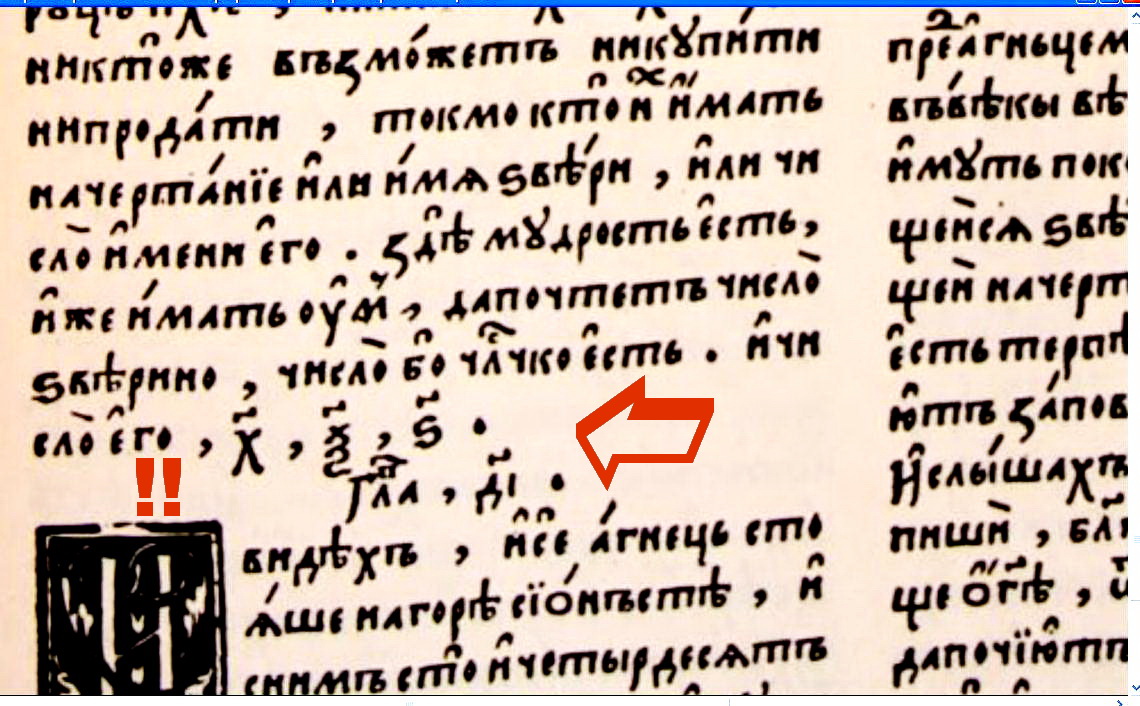 никто́же възмо́жетъ никꙋпи́ти
нипрода́ти , токмо кто̑ и҆ и҆́мать
начерта́нїе и҆̑ли и҆́мѧ ѕвѣ́ри , и҆̑ли чи
сло̀ и҆̑мени є҆̑го . ꙁдѣ̑ мꙋдрость є҆̑сть,
и҆̑же и҆́мать оу҆̑м̾ , дапочтетъ число̀
ѕвѣрино , число̀ бо̑ чл҃чко є҆̑сть . и҆̑чи
сло̀ є҆̑го , х҃ , ѯ҃ , ѕ҃ .
Гла̑ , д҃і .
видѣхъ , и҆̑се̑ а҆́гнець сто
ѧ҆́ше нагорѣ сїо́нъстѣ , и҆̑
снимъ сто̑ и҆̑четырдесѧтъ
пре́а҆гньцем
въвѣ́кы вѣ
и҆̑мꙋть пок
щеи҆̑сѧ ѕвѣ
щеи҆̀ начерт
є҆̑сть терпѣ
ю҆̑тъ ꙁа́пов
И҆̑слы́шахъ
пишѝ , бл҃
ще ѻ҆̑г҃ѣ ,
дапочїю̑тъ